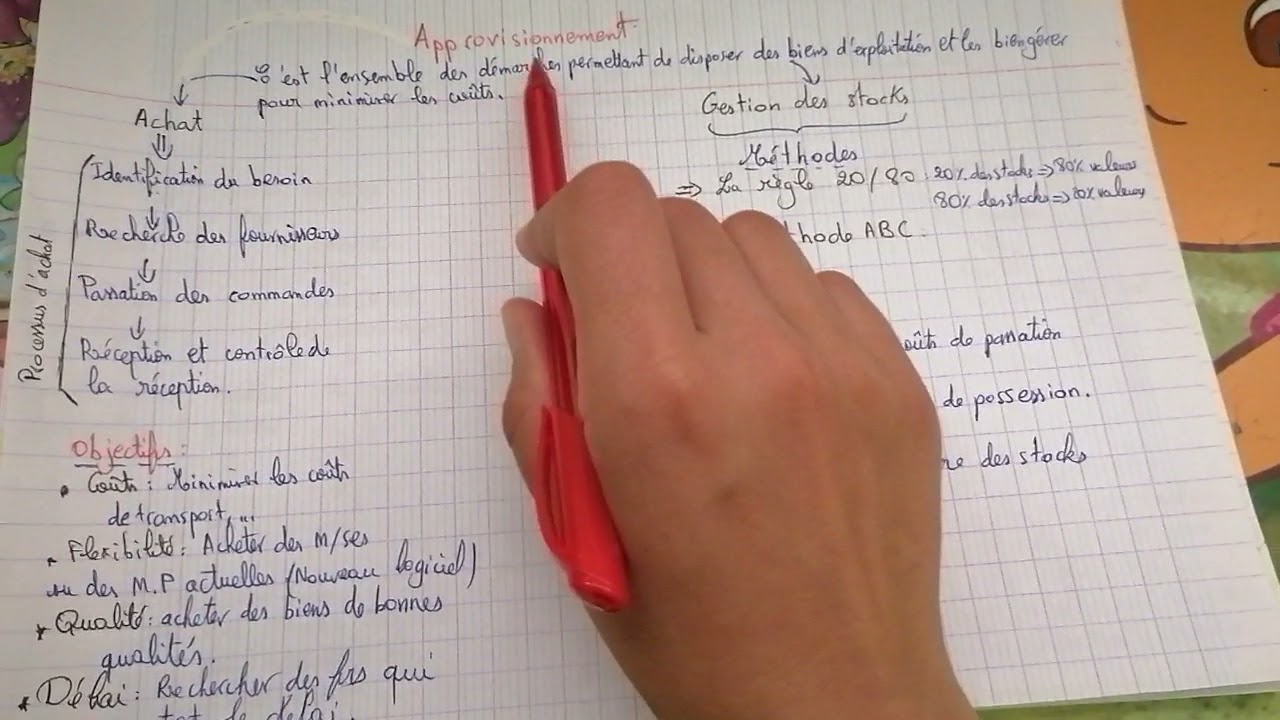 Approvisionnement
C'est l'ensemble des démarches permettant de disposer des biens d'exploitation et les bien gérer
pour minimiser les coûts.
Achat
Processus d'achat
Identification du besoin
Recherche des fournisseurs
Passation des commandes
Réception et contrôle de
la réception.
Objectifs :
Coûts : Minimiser les coûts
de transport, ...
Flexibilité : Acheter des m/ses
ou des M.P actuelles (Nouveau logiciel)
Qualité : acheter des biens de bonnes
qualités.
Délai : Rechercher des frs qui
de délai.
Gestion des stocks
Méthodes
⇒ La règle 20/80 : 20% des stocks ⇒ 80% valeurs
80% des stocks ⇒ 20% valeurs
thode ABC.
oûts de passation
de possession.
re des stocks